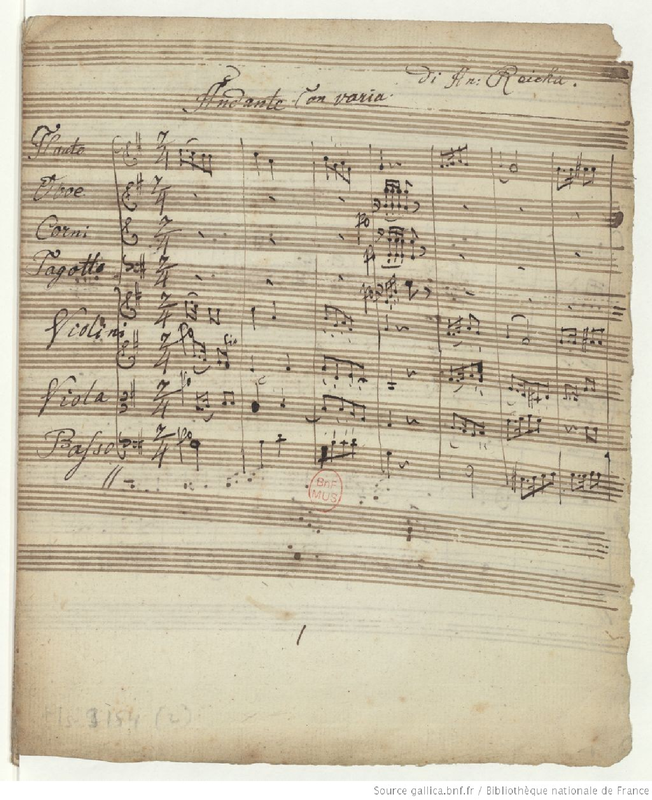 di An: Reicha.
Andante Con varia
Flauto
Oboe
Corni
Fagotto
Violini
Viola
Basso
2/4
2/4
2/4
2/4
2/4
2/4
2/4
2/4
BnF
MUS
1
Ms 9154 (2)
Source gallica.bnf.fr / Bibliothèque nationale de France